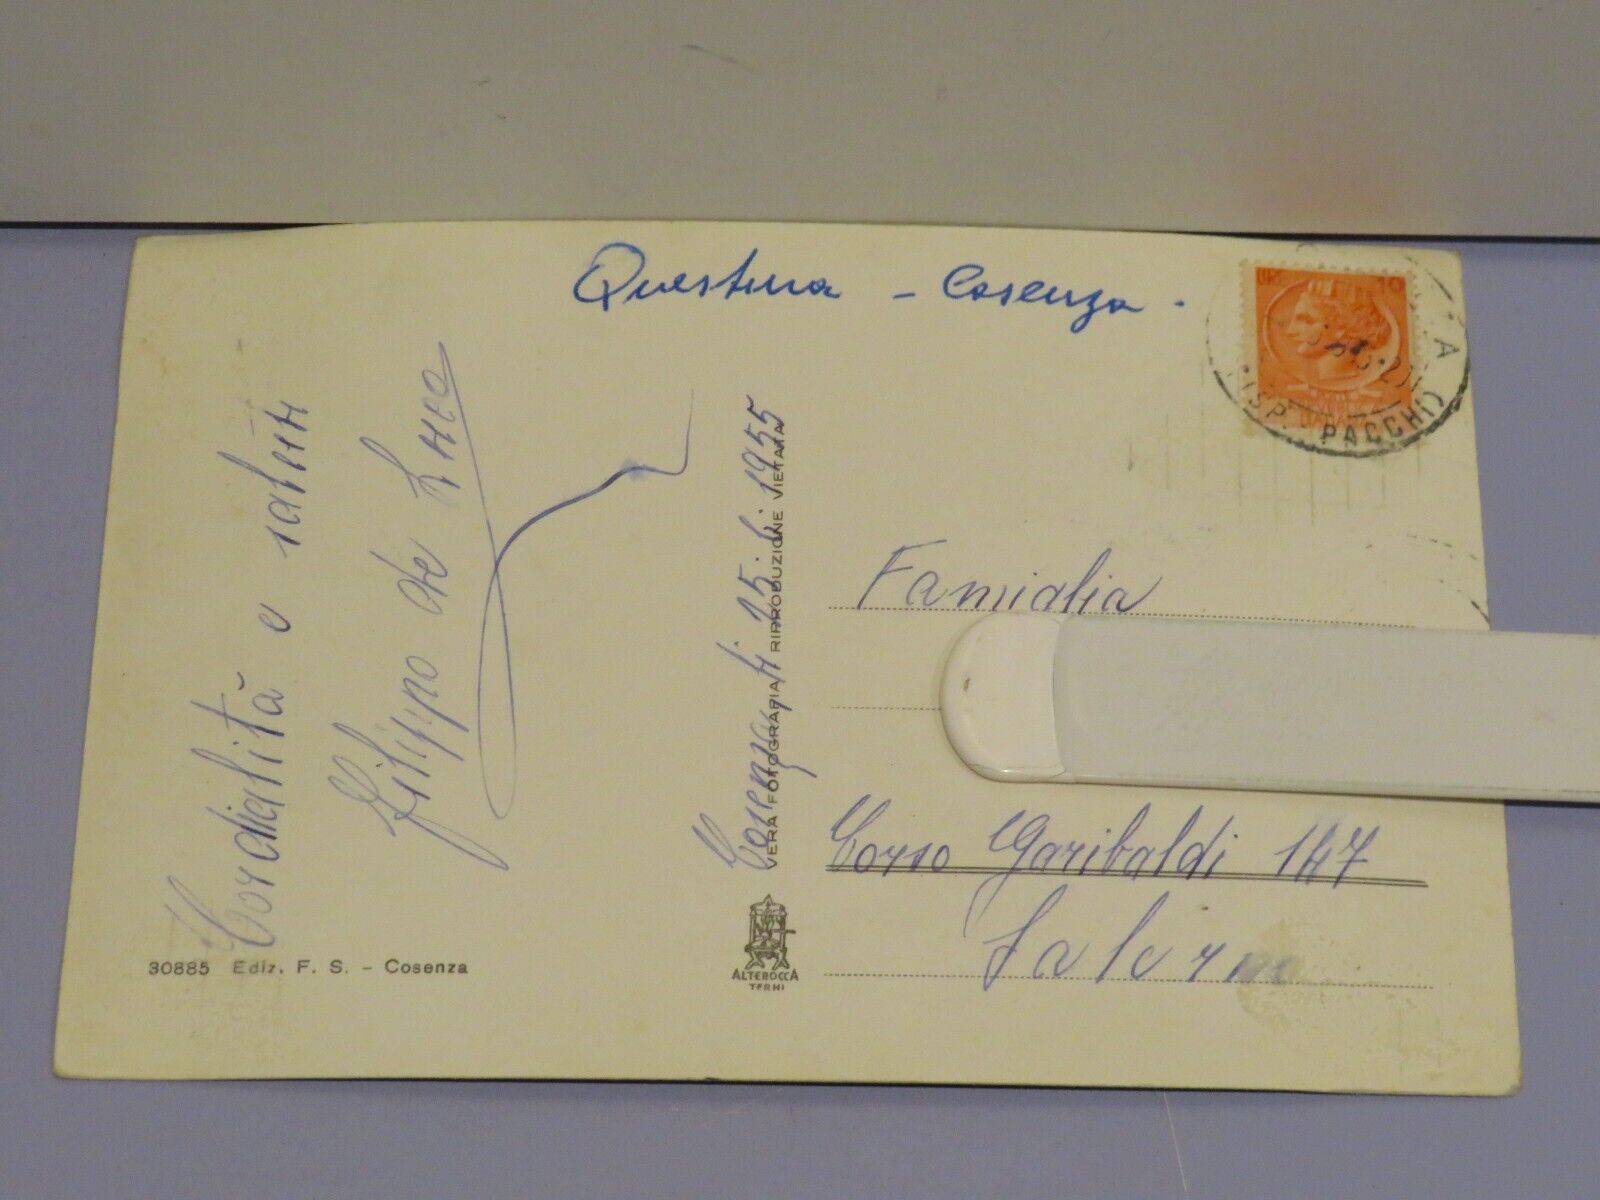 Questura - Cosenza -
LIRE 10
A
PACCHI
Cordialità e saluti
Filippo de Luca
Cosenza, li 25. 6. 1955
VERA FOTOGRAFIA RIPRODUZIONE VIETATA
Famiglia
Corso Garibaldi 147
Salerno
30885 Ediz. F. S. - Cosenza
ALTEROCCA
TERNI